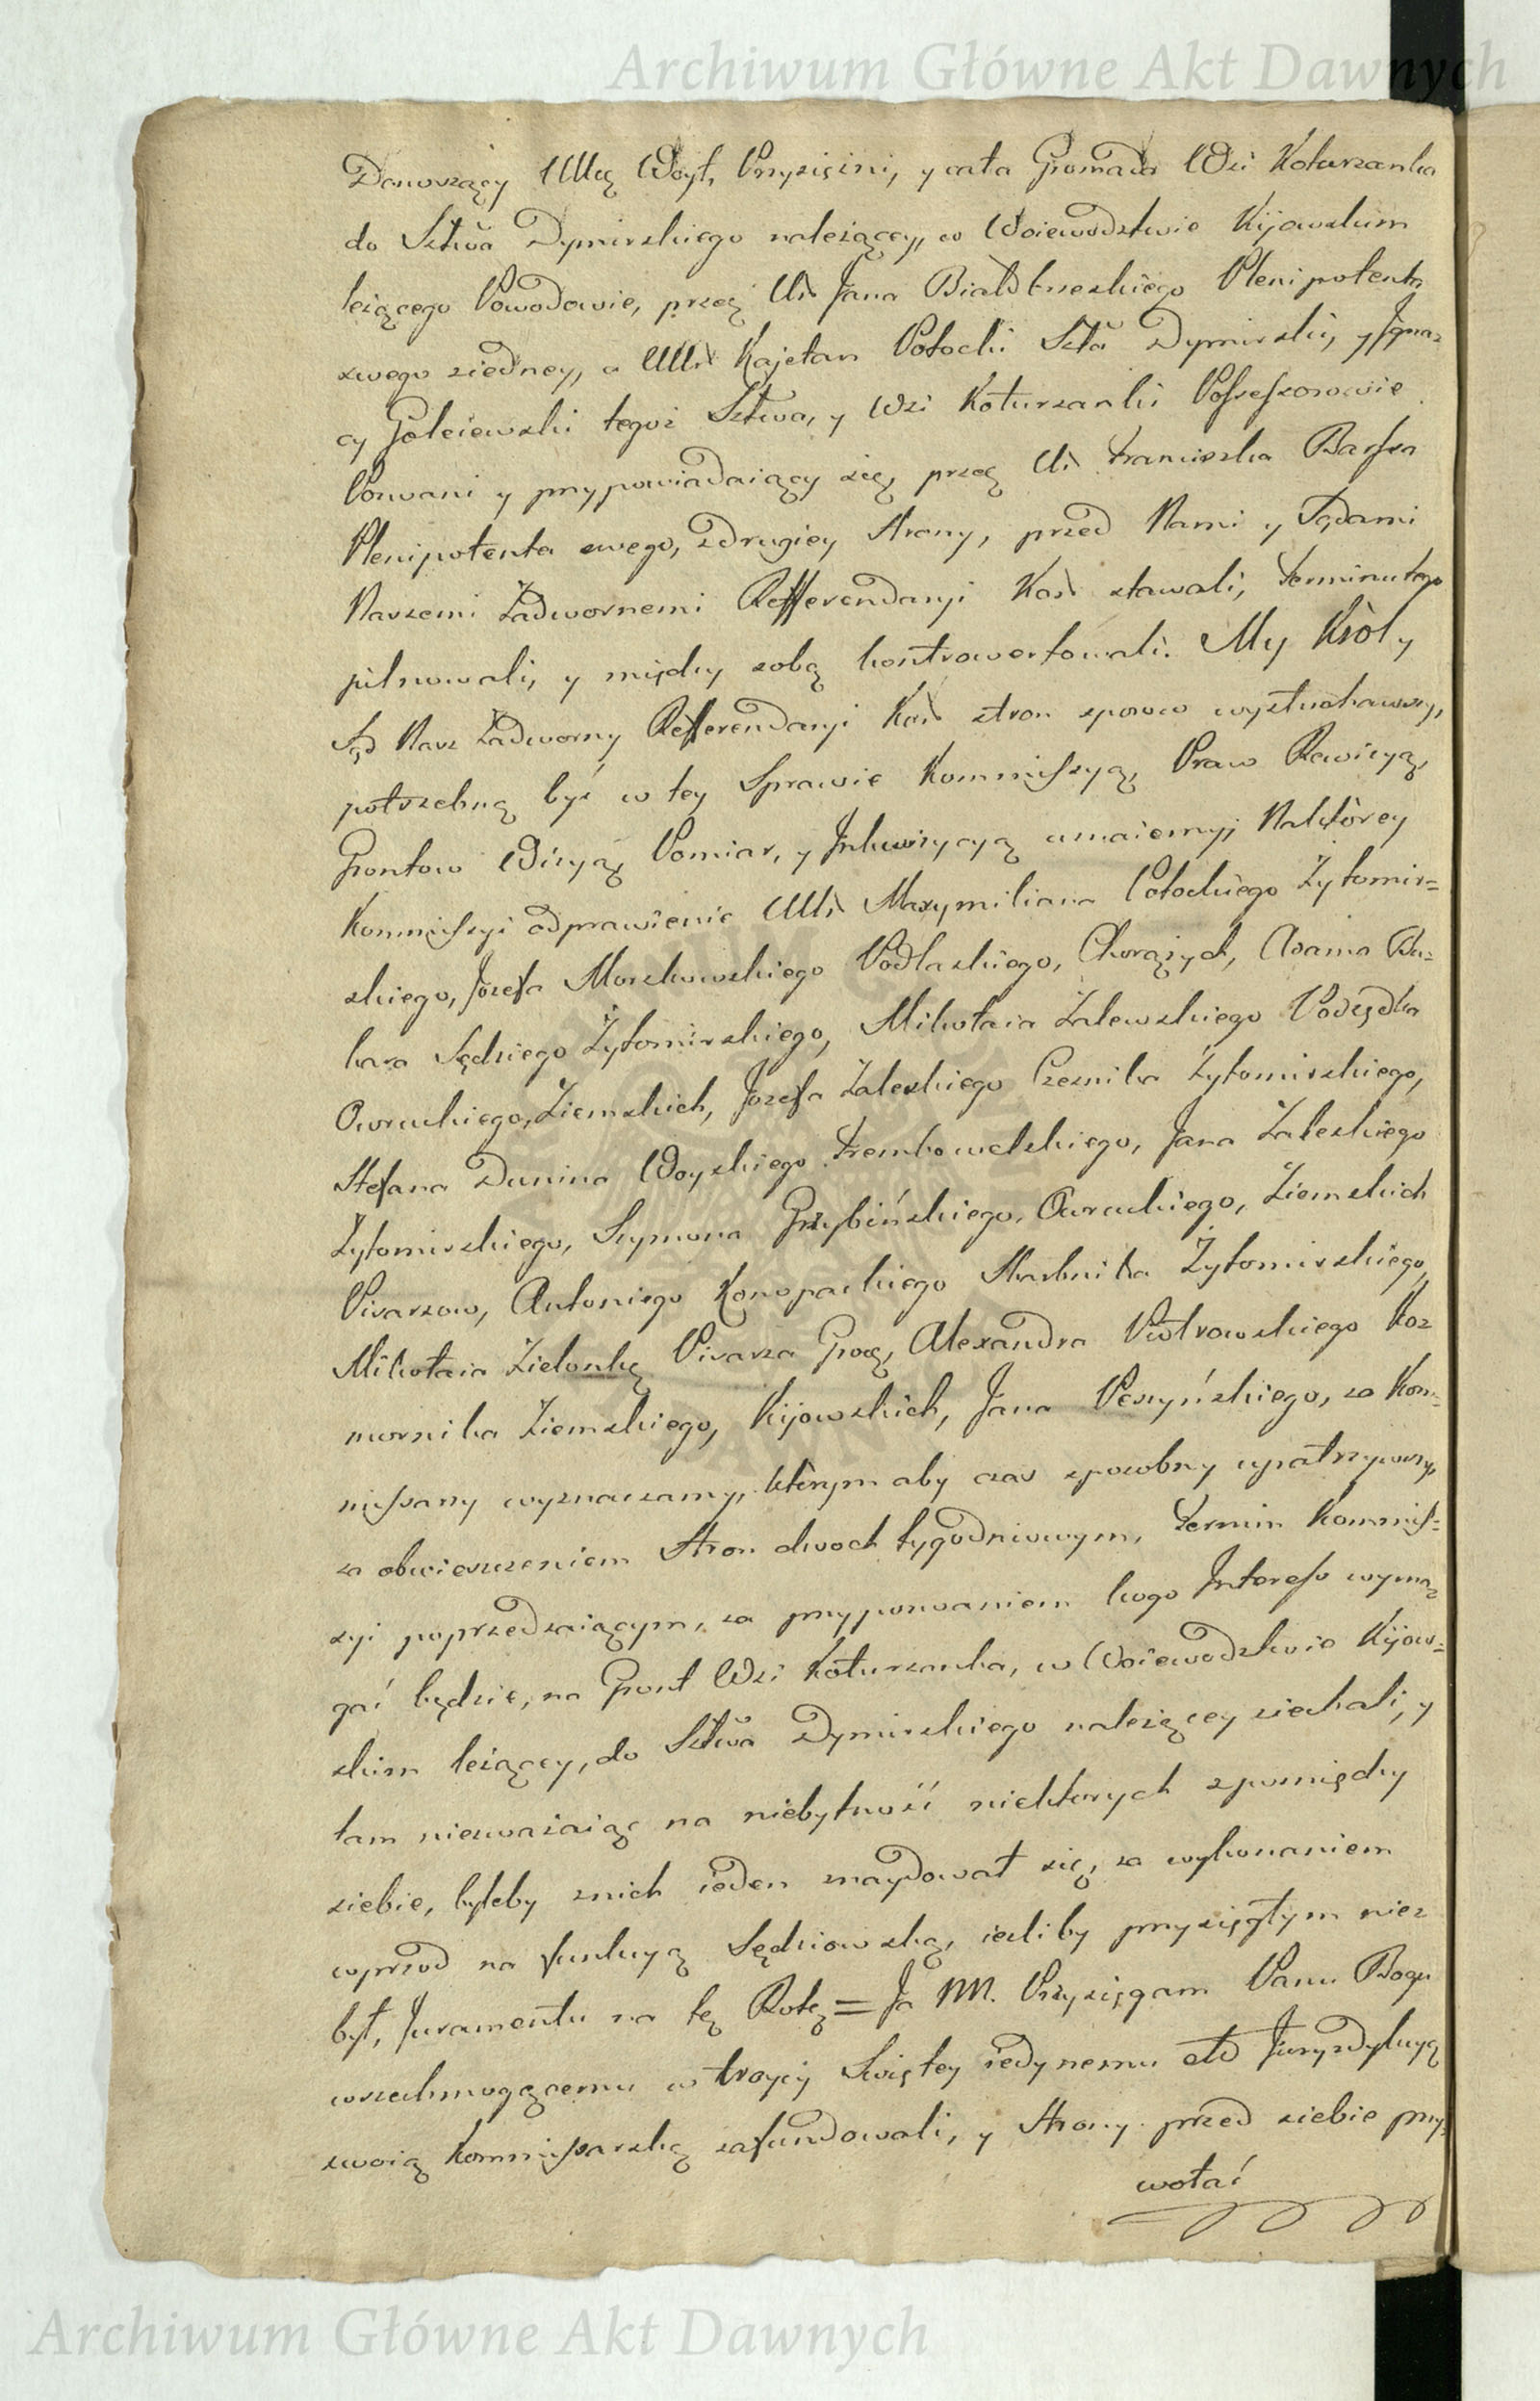 Archiwum Główne Akt Dawnych
Donoszący Uttą Woyt, Przysiężni, y cała Gromada Wsi Koturzanka
do Sttwa Dymirskiego należący, w Woiewodztwie Kijowskim
leżącego Powodowie, przez Ur Jana Białobrzeskiego Plenipotenta
swego ziedney, a UUr Kajetan Potocki Stta Dymirski, y Igna=
cy Goleiewski tegoż Sttwa, y Wsi Koturzanki Possessorowie
Pozwani y przypowiadaiący się, przez Ur Franciszka Barssa
Plenipotenta swego, zdrugiey Strony, przed Nami y Sądami
Naszemi Zadwornemi Refferendaryi Kor stawali, terminu tego
pilnowali, y między sobą kontrowertowali. My Król y
Sąd Nasz Zadworny Refferendaryi Kor stron sporow wysłuchawszy,
potrzebną być w tey Sprawie Kommissyą, Praw Rewizyą,
Gruntow Wizyą, Pomiar, y Inkwizycyą uznaiemy; Naktòrey
Kommissyi odprawienie UUr Maxymiliana Potockiego Żytomir=
skiego, Józefa Morzkowskiego Podlaskiego, Chorążych, Adama Bu=
kara Sędziego Żytomirskiego, Mikołaia Zalewskiego Podsędka
Owruckiego, Ziemskich, Jozefa Zaleskiego Czesnika Żytomirskiego,
Stefana Dunina Woyskiego Trembowelskiego, Jana Zaleskiego
Żytomirskiego, Szymona Grzybińskiego, Owruckiego, Ziemskich
Pisarzow, Antoniego Konopackiego Skarbnika Żytomirskiego,
Mikołaia Zielonkę Pisarza Grog, Alexandra Piotrowskiego Ko=
mornika Ziemskiego, Kijowskich, Jana Peszyńskiego, za Kom=
missarzy wyznaczamy, ktòrym aby czas sposobny upatrzywszy,
za obwieszczeniem Stron dwoch tygodniowym, termin Kommis=
syi poprzedzaiącym, za przypozwaniem kogo Interess wyma=
gać będzie, na Grunt Wsi Koturzanka, w Woiewodztwie Kijow=
skim leżący, do Sttwa Dymirskiego należącey ziechali, y
tam niezważaiąc na niebytność niektorych zpomiędzy
siebie, byleby znich ieden znaydował się, za wykonaniem
wprzod na funkcyą Sędziowską, ieżliby przysięgłym nie=
był, Juramentu na tę Rotę = Ja NN. Przysięgam Panu Bogu
wszechmogącemu w troycy Swiętey iedynemu etc Juryzdykcyą
swoią Kommissarską zafundowali, y Strony przed siebie przy=
wołać
Archiwum Główne Akt Dawnych